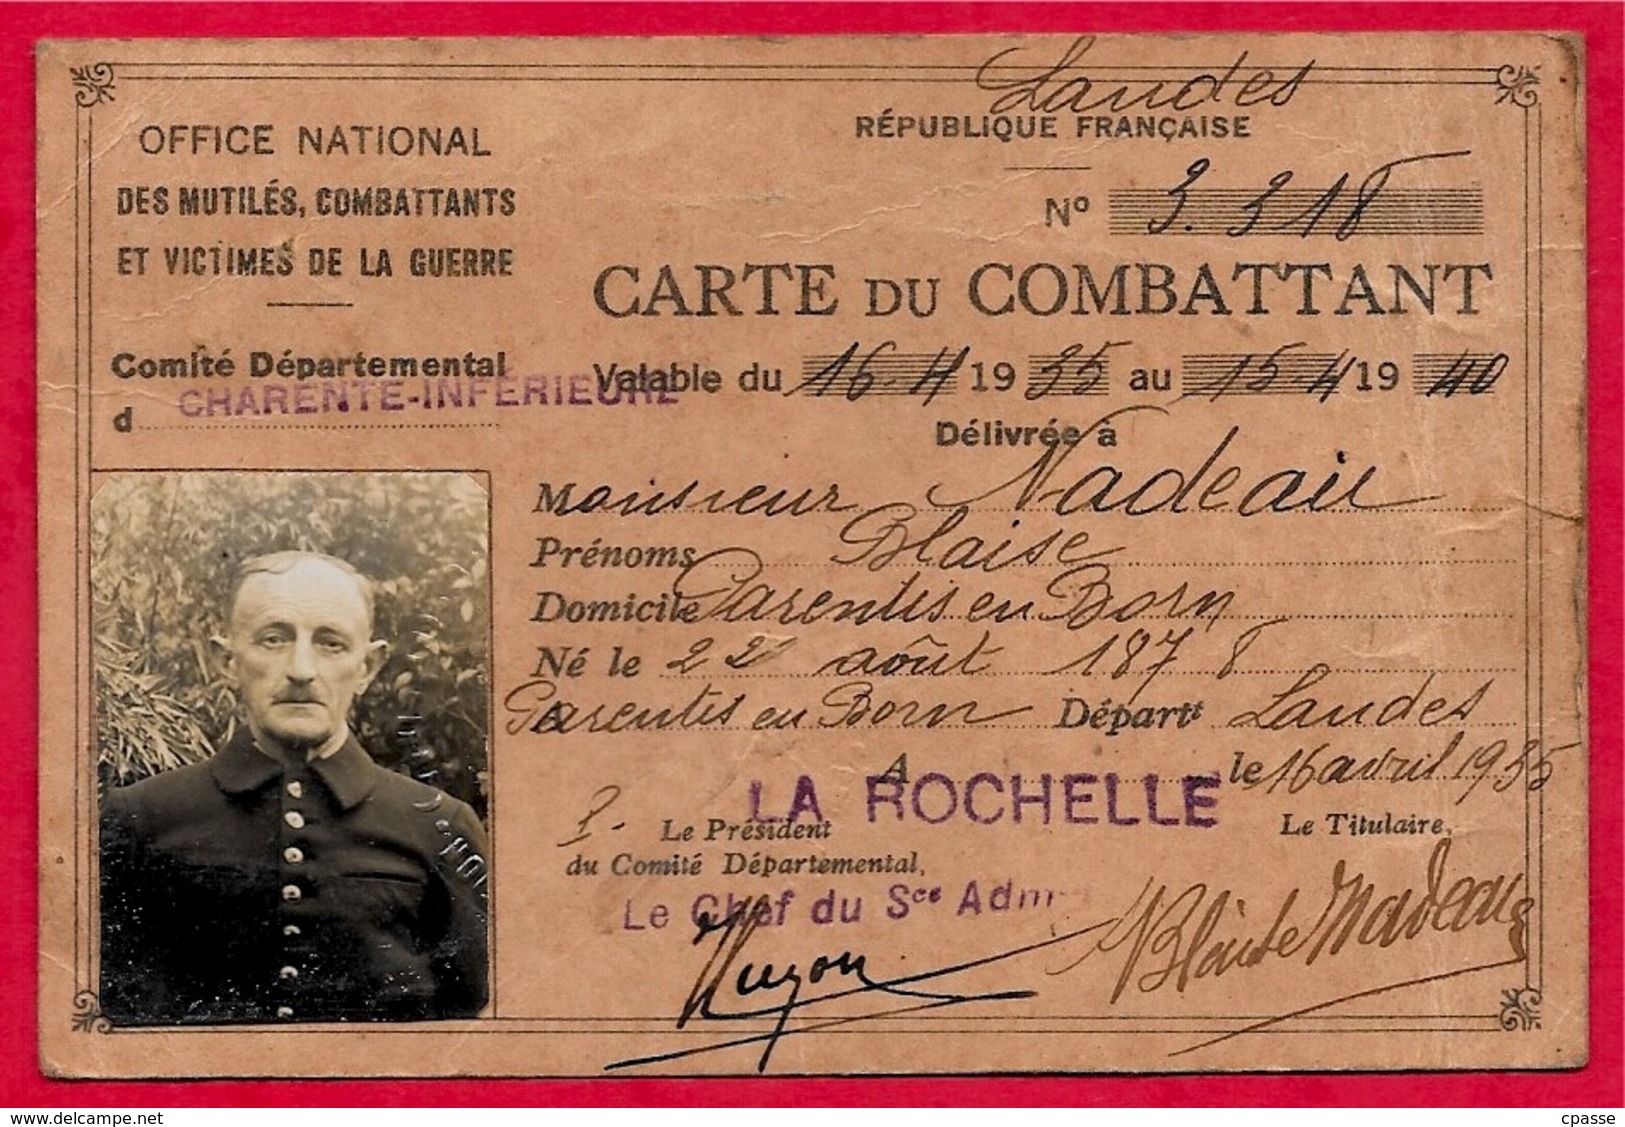 Landes
RÉPUBLIQUE FRANÇAISE
OFFICE NATIONAL
DES MUTILÉS, COMBATTANTS
ET VICTIMES DE LA GUERRE
Nº 3.318
CARTE DU COMBATTANT
Comité Départemental
d CHARENTE-INFÉRIEURE
Valable du 16-4 1935 au 15-4 1940
Délivrée à
Monsieur Nadeau
Prénoms Blaise
Domicile Parentis en Born
Né le 22 août 1878
à Parentis en Born Départt Landes
A LA ROCHELLE le 16 avril 1935
P. Le Président
du Comité Départemental,
Le Titulaire,
Le Chef du Sce Adm
Nadeau
delcampe.net
cpasse